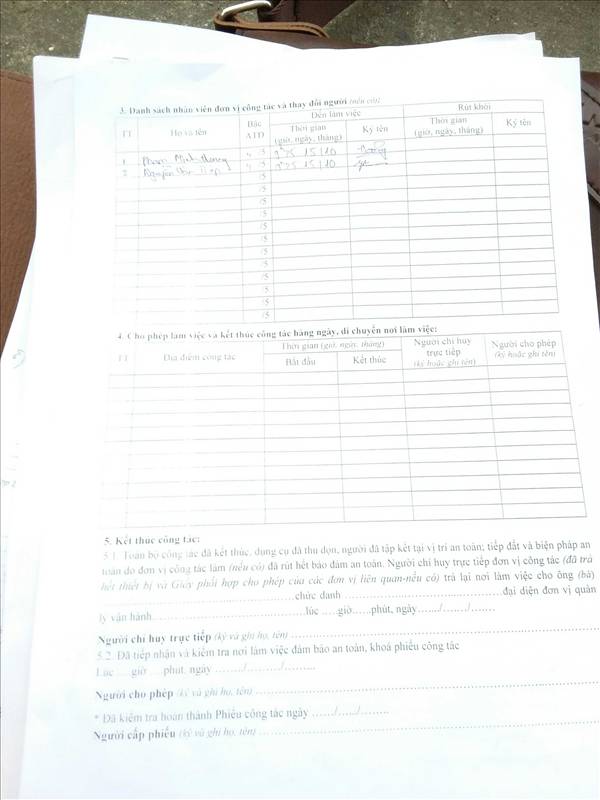 3. Danh sách nhân viên đơn vị công tác và thay đổi người (nếu có):
TT Họ và tên Bậc ATĐ Đến làm việc Rút khỏi
Thời gian (giờ, ngày, tháng) Ký tên Thời gian (giờ, ngày, tháng) Ký tên
1 Phạm Minh /5 15/10
2 Nguyễn Văn /5 15/10
/5
/5
/5
/5
/5
/5
/5
/5
/5
/5
/5
/5
4. Cho phép làm việc và kết thúc công tác hàng ngày, di chuyển nơi làm việc:
TT Địa điểm công tác Thời gian (giờ, ngày, tháng) Người chỉ huy trực tiếp (ký hoặc ghi tên) Người cho phép (ký hoặc ghi tên)
Bắt đầu Kết thúc
5. Kết thúc công tác:
5.1. Toàn bộ công tác đã kết thúc, dụng cụ đã thu dọn, người đã tập kết tại vị trí an toàn; tiếp đất và biện pháp an
toàn do đơn vị công tác làm (nếu có) đã rút hết bảo đảm an toàn. Người chỉ huy trực tiếp đơn vị công tác (đã trả
hết thiết bị và Giấy phối hợp cho phép của các đơn vị liên quan-nếu có) trả lại nơi làm việc cho ông (bà)
..........chức danh ..........đại diện đơn vị quản
lý vận hành..........lúc .....giờ.....phút, ngày....../....../......
Người chỉ huy trực tiếp (ký và ghi họ, tên) ..........
5.2. Đã tiếp nhận và kiểm tra nơi làm việc đảm bảo an toàn, khoá phiếu công tác
Lúc .....giờ .....phút, ngày ....../....../......
Người cho phép (ký và ghi họ, tên) ..........
* Đã kiểm tra hoàn thành Phiếu công tác ngày ....../....../......
Người cấp phiếu (ký và ghi họ, tên) ..........